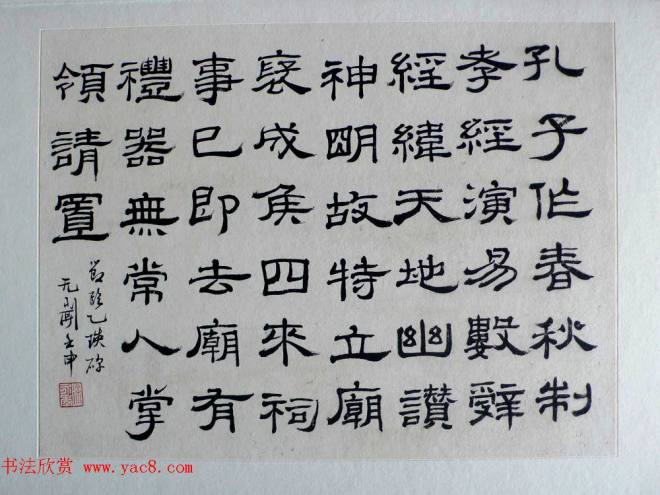 孔子作春秋制
孝經演易毄辭
經緯天地幽讚
神明故特立廟
褒成侯四來祠
事已即去廟有
禮器無常人掌
領請置
節臨乙瑛碑
壬申
书法欣赏 www.yac8.com